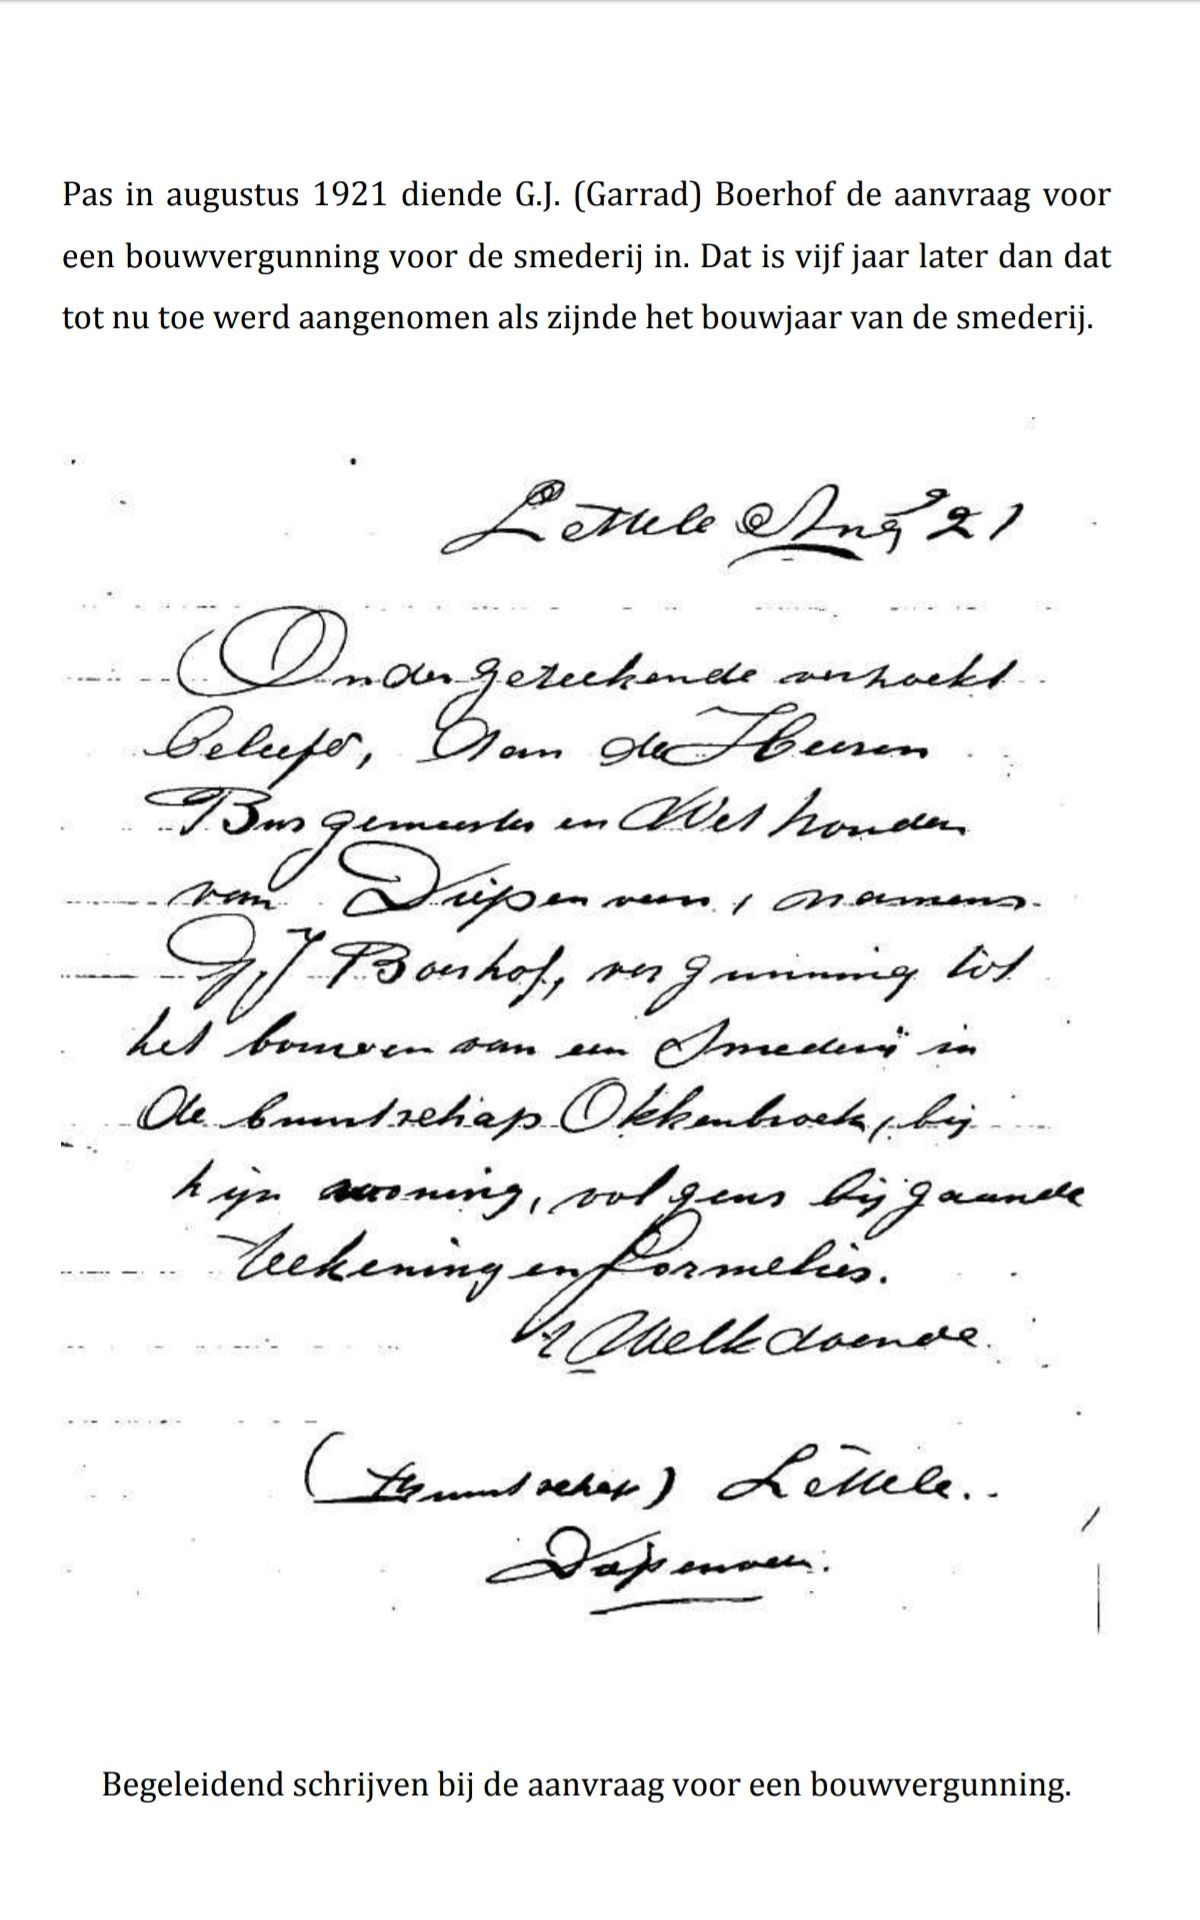 Pas in augustus 1921 diende G.J. (Garrad) Boerhof de aanvraag voor
een bouwvergunning voor de smederij in. Dat is vijf jaar later dan dat
tot nu toe werd aangenomen als zijnde het bouwjaar van de smederij.
Lettele Aug '21
Ondergeteekende verzoekt
beleefd, Aan de Heeren
Burgemeester en Wethouders
van Diepenveen, namens
G J Boerhof, vergunning tot
het bouwen van een Smederij in
de buurtschap Okkenbroek, bij
zijn woning, volgens bijgaande
teekening en formulier.
't Welk doende.
(buurtschap) Lettele.
Diepenveen.
Begeleidend schrijven bij de aanvraag voor een bouwvergunning.